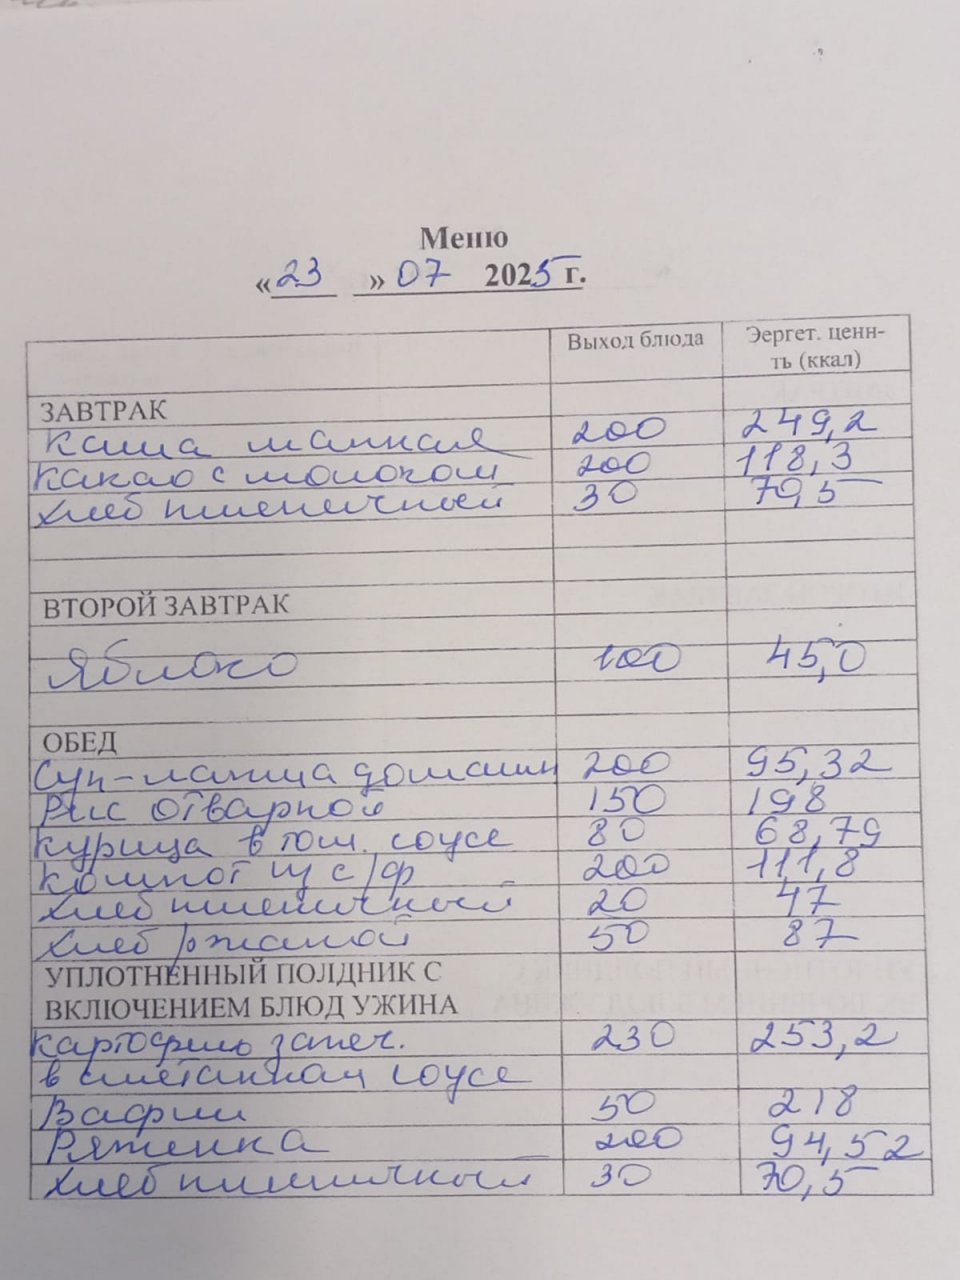 Меню
«23» 07 2025 г.
Выход блюда Эергет. ценн-
ть (ккал)
ЗАВТРАК
Каша манная 200 249,2
Какао с молоком 200 118,3
Хлеб пшеничный 30 70,5
ВТОРОЙ ЗАВТРАК
Яблоко 100 45,0
ОБЕД
Суп-лапша домашн 200 95,32
Рис отварной 150 198
Курица в том. соусе 80 68,79
Компот из с/ф 200 111,8
Хлеб пшеничный 20 47
Хлеб ржаной 50 87
УПЛОТНЕННЫЙ ПОЛДНИК С
ВКЛЮЧЕНИЕМ БЛЮД УЖИНА
Картофель запеч. 230 253,2
в сметанном соусе
Вафли 50 218
Ряженка 200 94,52
Хлеб пшеничный 30 70,5